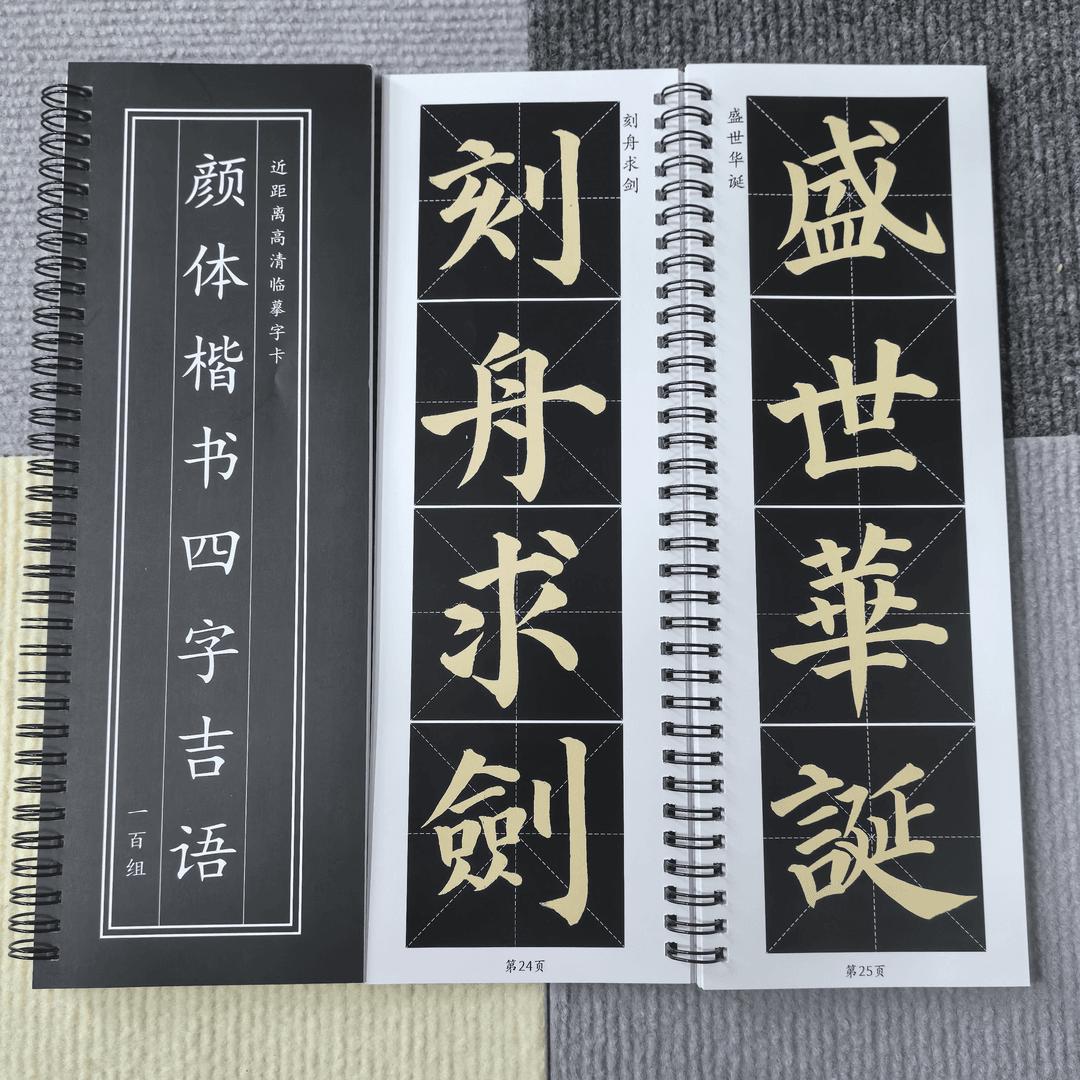 近距离高清临摹字卡
颜体楷书四字吉语
一百组
刻舟求剑
刻舟求劍
第24页
盛世华诞
盛世華誕
第25页